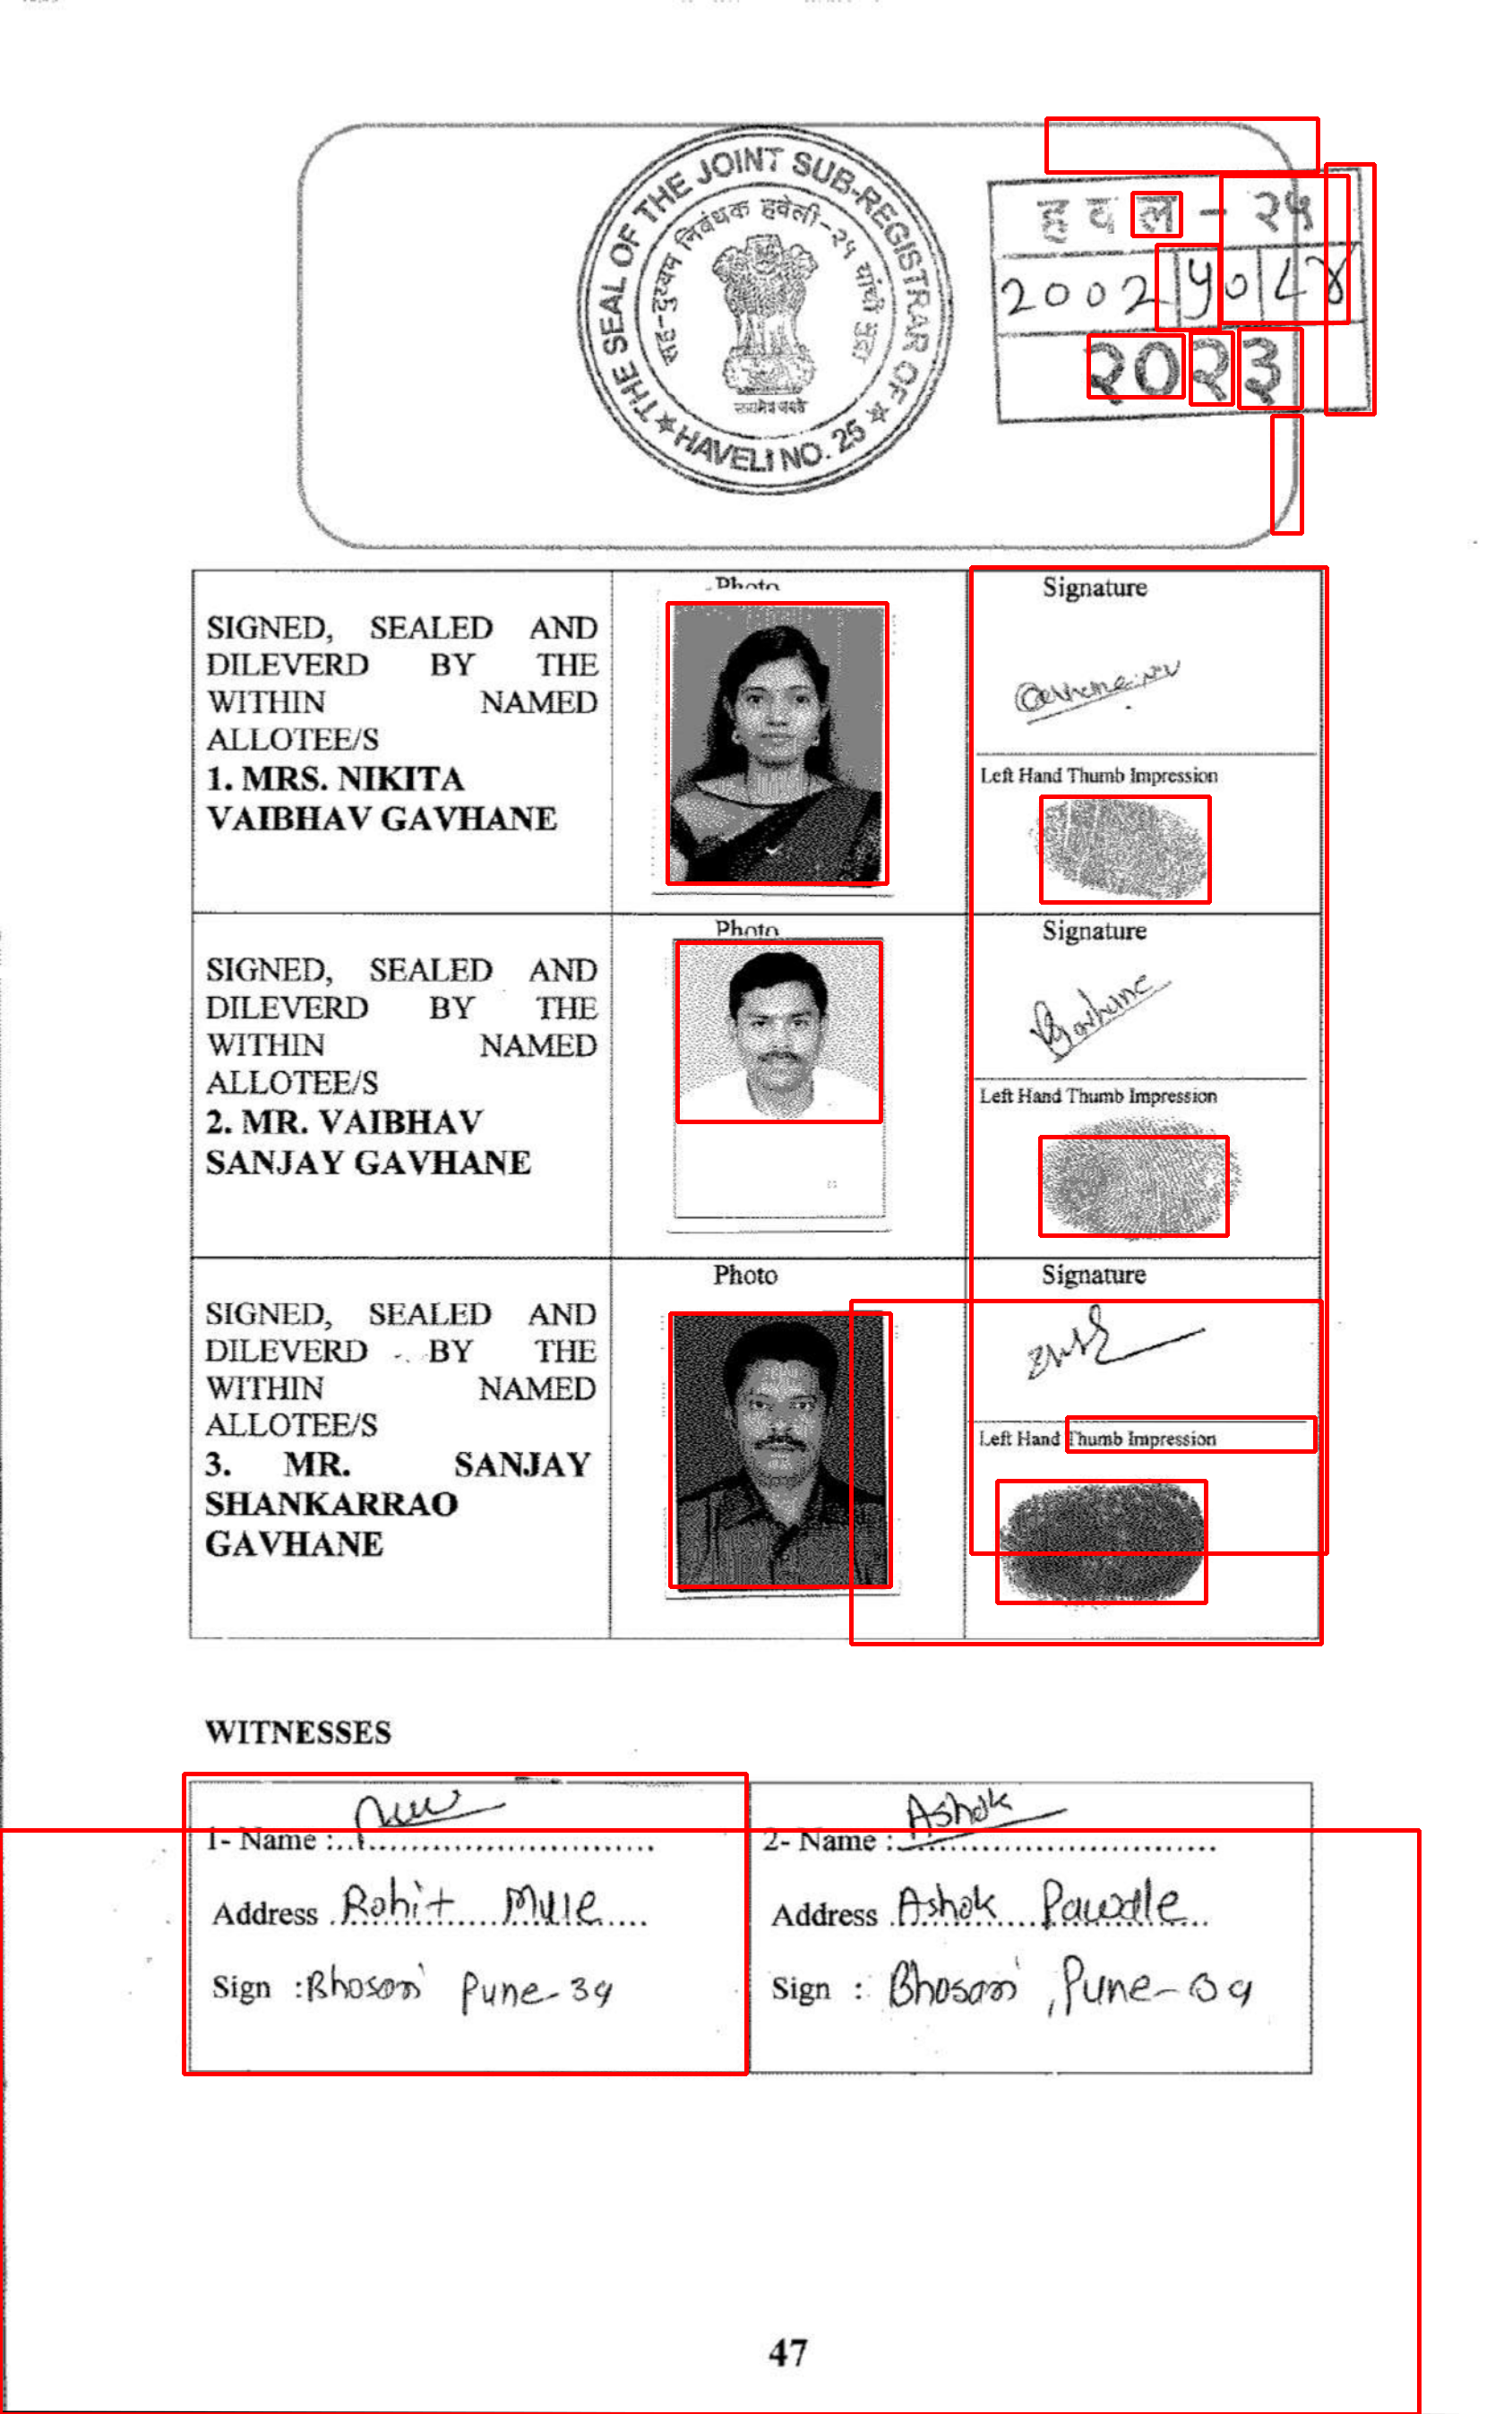 THE SEAL OF THE JOINT SUB-REGISTRAR OF
★ HAVELI NO. 25 ★
सह-दुय्यम निबंधक हवेली-२५ यांची मुद्रा
सत्यमेव जयते
हवल - २५
2002 | 40 | L8
२०२३
SIGNED, SEALED AND
DILEVERD BY THE
WITHIN NAMED
ALLOTEE/S
1. MRS. NIKITA
VAIBHAV GAVHANE
Photo
Signature
Left Hand Thumb Impression
SIGNED, SEALED AND
DILEVERD BY THE
WITHIN NAMED
ALLOTEE/S
2. MR. VAIBHAV
SANJAY GAVHANE
Photo
Signature
Gavhane
Left Hand Thumb Impression
SIGNED, SEALED AND
DILEVERD BY THE
WITHIN NAMED
ALLOTEE/S
3. MR. SANJAY
SHANKARRAO
GAVHANE
Photo
Signature
Left Hand Thumb Impression
WITNESSES
1- Name :
Address Rohit Mule
Sign : Bhosari Pune-39
2- Name : Ashok
Address Ashok Pawdle
Sign : Bhosari, Pune-39
47